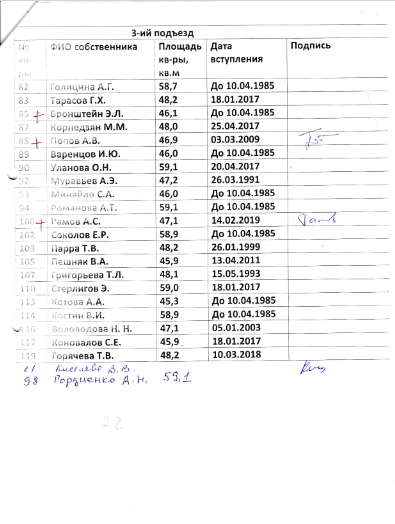 3-ий подъезд
№ кв-ры ФИО собственника Площадь кв-ры, кв.м Дата вступления Подпись
82 Голицина А.Г. 58,7 До 10.04.1985
83 Тарасов Г.Х. 48,2 18.01.2017
85 Бронштейн Э.Л. 46,1 До 10.04.1985
87 Корнедзян М.М. 48,0 25.04.2017
88 Попов А.В. 46,9 03.03.2009
89 Варенцов И.Ю. 46,0 До 10.04.1985
90 Уланова О.Н. 59,1 20.04.2017
92 Муравьев А.Э. 47,2 26.03.1991
93 Миняйло С.А. 46,0 До 10.04.1985
94 Романова А.Т. 59,1 До 10.04.1985
100 Рамов А.С. 47,1 14.02.2019
102 Соколов Е.Р. 58,9 До 10.04.1985
103 Парра Т.В. 48,2 26.01.1999
105 Пешняк В.А. 45,9 13.04.2011
107 Григорьева Т.Л. 48,1 15.05.1993
110 Стерлигов Э. 59,0 18.01.2017
113 Котова А.А. 45,3 До 10.04.1985
114 Костин В.И. 58,9 До 10.04.1985
116 Воловодова Н. Н. 47,1 05.01.2003
117 Коновалов С.Е. 45,9 18.01.2017
119 Горячева Т.В. 48,2 10.03.2018
Киселева В.
98 Гордиенко Д.Н. 59,1
22